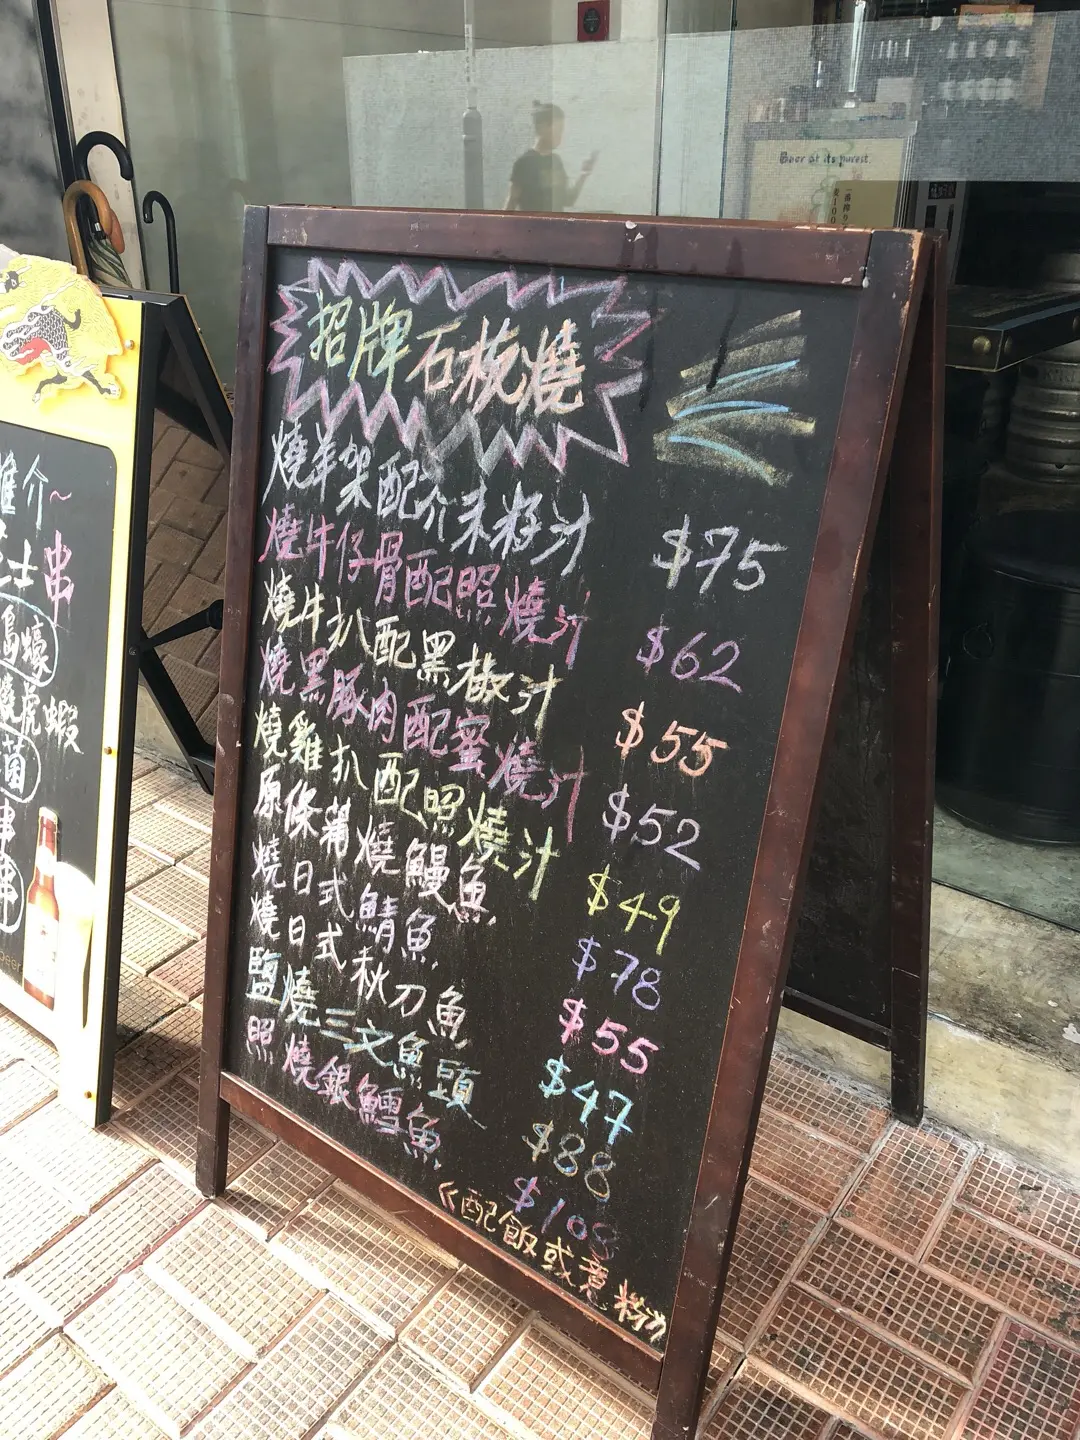 招牌石梳燒
燒羊架配介末籽汁 $75
燒牛仔骨配照燒汁 $62
燒牛扒配黑椒汁 $55
燒黑豚肉配蜜燒汁 $52
燒雞扒配照燒汁 $49
原條蒲燒鰻魚 $78
燒日式鯖魚 $55
燒日式秋刀魚 $47
鹽燒三文魚頭 $88
照燒銀鱈魚 $108
《配飯或意粉》
推介~
士串
島蠔
虎蝦
菌
串
串
beer
Beer at its purest.